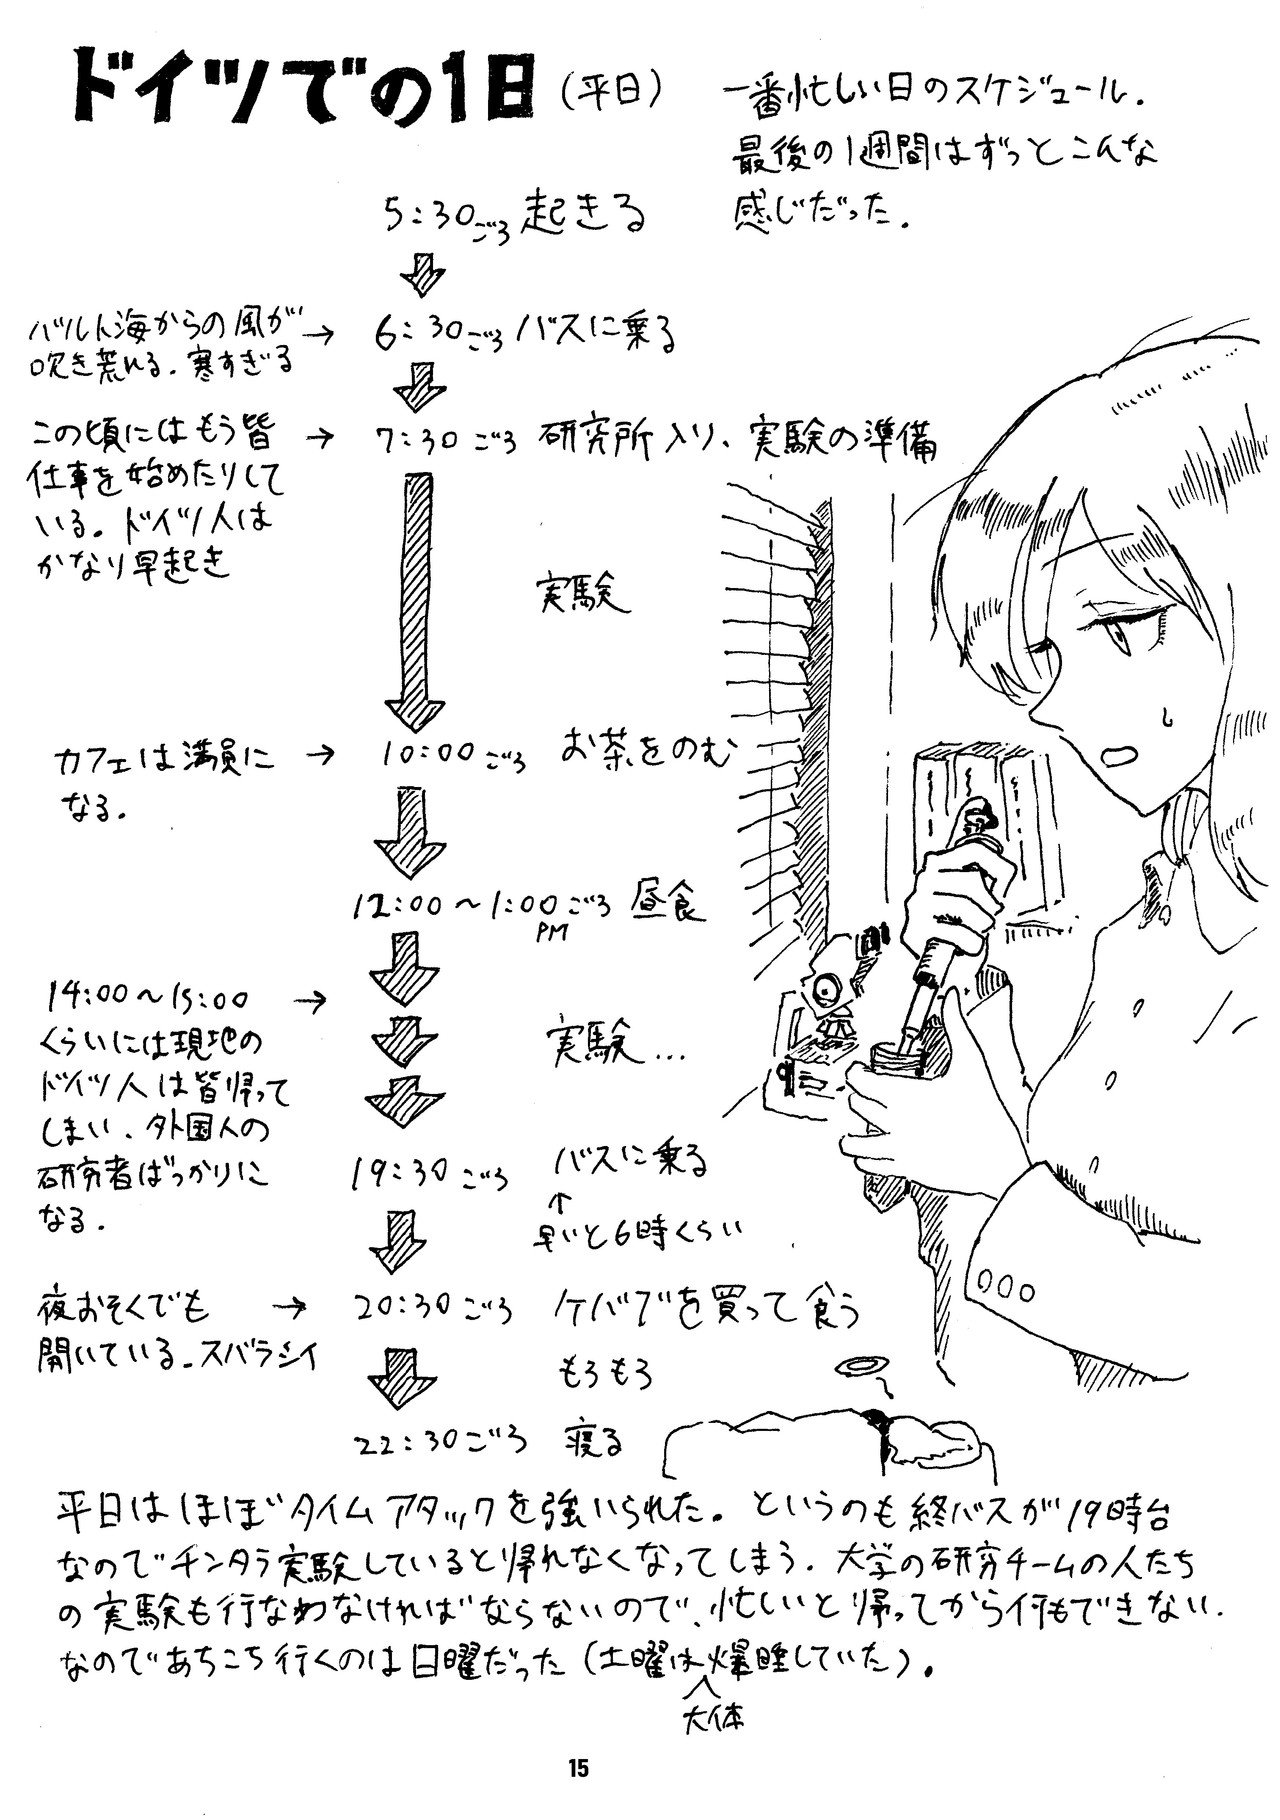 ドイツでの1日(平日)
一番忙しい日のスケジュール.
最後の1週間はずっとこんな
感じだった.
5:30ごろ 起きる
バルト海からの風が
吹き荒れる.寒すぎる
→ 6:30ごろ バスに乗る
この頃にはもう皆
仕事を始めたりして
いる。ドイツ人は
かなり早起き
→ 7:30ごろ 研究所入り、実験の準備
実験
カフェは満員に
なる.
→ 10:00ごろ お茶をのむ
12:00~1:00ごろ 昼食
PM
14:00~15:00 →
くらいには現地の
ドイツ人は皆帰って
しまい、外国人の
研究者ばっかりに
なる.
実験...
19:30ごろ バスに乗る
↑
早いと6時くらい
夜おそくでも
開いている.スバラシイ
→ 20:30ごろ ケバブを買って食う
もろもろ
22:30ごろ 寝る
平日はほぼタイムアタックを強いられた。というのも終バスが19時台
なのでチンタラ実験していると帰れなくなってしまう.大学の研究チームの人たち
の実験も行なわなければならないので、忙しいと帰ってから何もできない.
なのであちこち行くのは日曜だった(土曜は爆睡していた).
大体
15